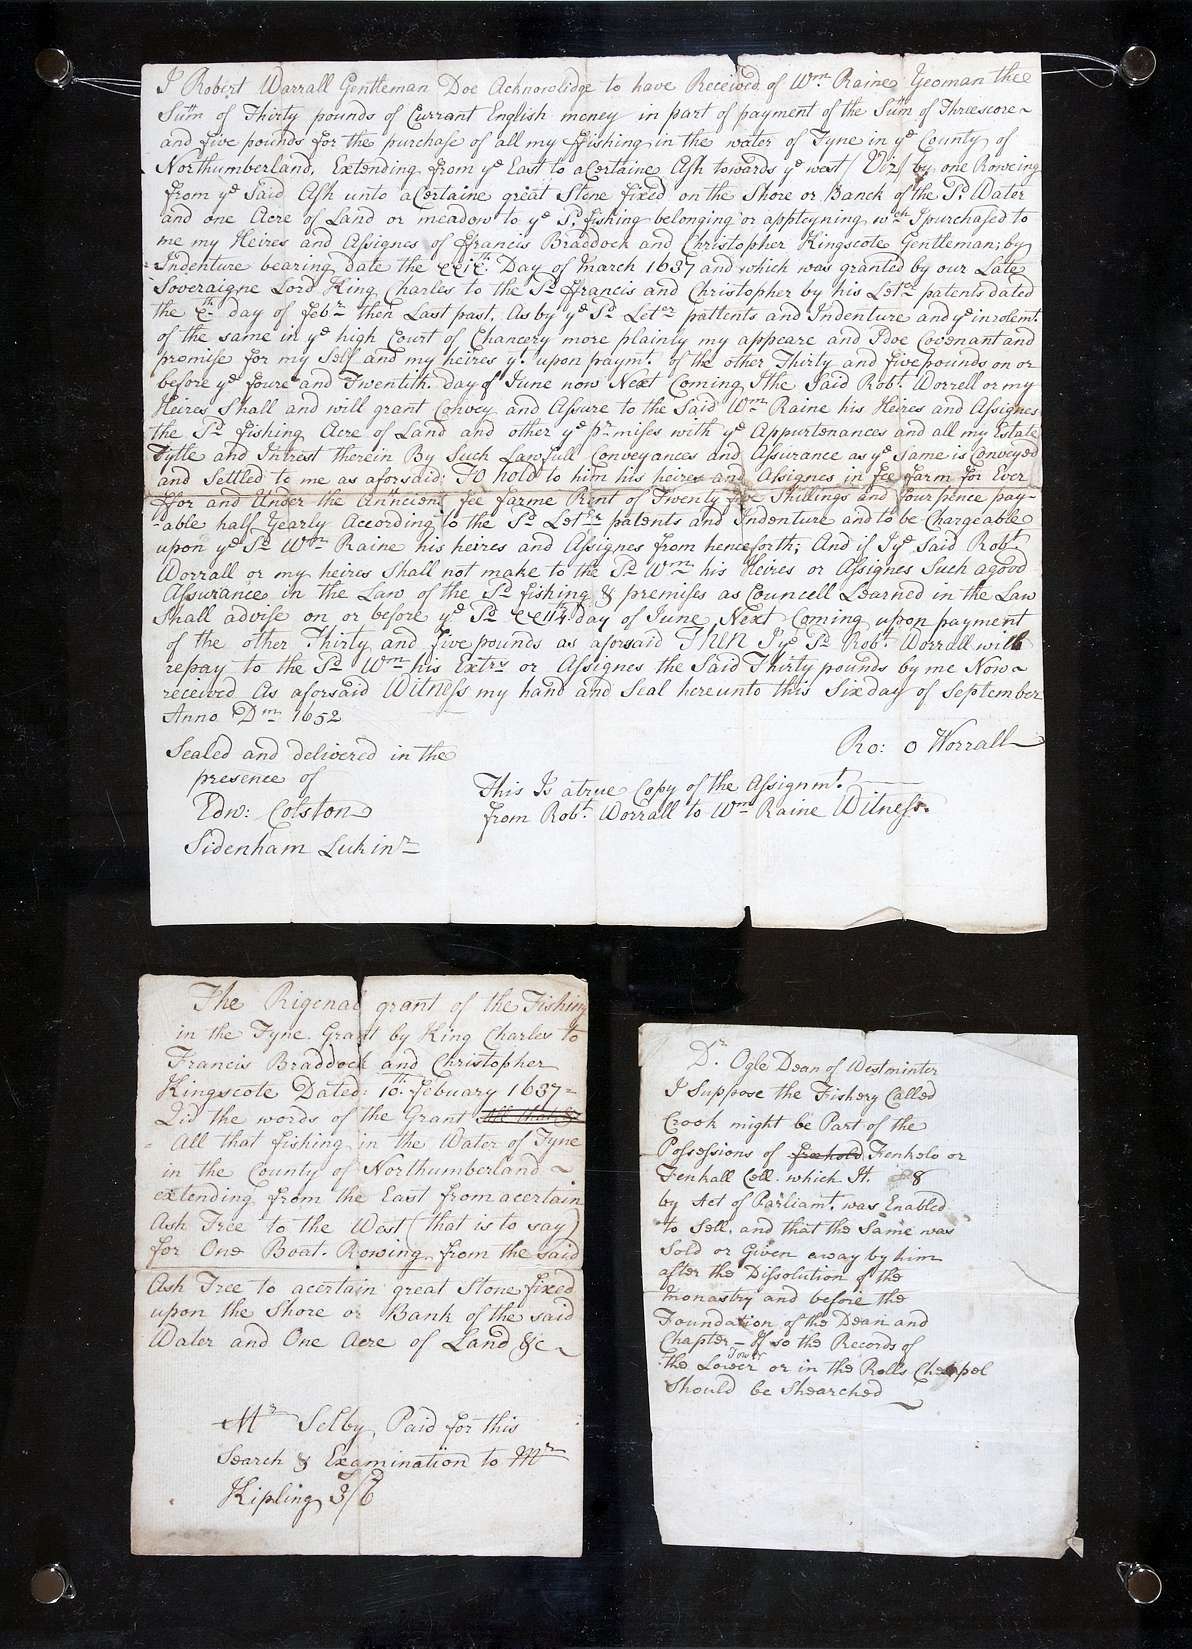 I Robert Warrall Gentleman Doe Acknowlidge to have Received of Wm Raine Yeoman thee
Sum of Thirty pounds of Currant English money in part of payment of the Sum of Threescore
and five pounds for the purchase of all my ffishing in the water of Tyne in ye County of
Northumberland, Extending from ye East to a Certaine Ash towards ye west (Viz) by one Roweing
from ye Said Ash unto a Certaine great Stone fixed on the Shore or Banck of the Sd. Water
and one Acre of Land or meadow to ye Sd. fishing belonging or appteyning wch I purchased to
me my Heires and Assignes of ffrancis Braddock and Christopher Kingscote Gentleman; by
Indenture bearing date the Day of March 1637 and which was granted by our Late
Soveraigne Lord King Charles to the Sd ffrancis and Christopher by his Letrs patents dated
the xth day of Febr then Last past, As by ye Sd Leters pattents and Indenture and ye inrolemt.
of the same in ye high Court of Chancery more plainly my appeare and I doe Covenant and
promise for my Self and my heires yt. upon paymt. of the other Thirty and five pounds on or
before ye foure and Twentith. day of June now Next Coming I the Said Robt. Worrell or my
Heires Shall and will grant Convey and Assure to the Said Wm Raine his Heires and Assignes
the Sd fishing Acre of Land and other ye prmises with ye Appurtenances and all my Estate
Tytle and Intrest therein By Such Lawfull Conveyances and Assurance as ye Same is Conveyed
and Settled to me as aforsaid: TO hold to him his heires and Assignes in fee farm for Ever
ffor and Under the Anncient fee farme Rent of Twenty five Shillings and fourpence pay-
-able half Yearly According to the Sd Leters patents and Indenture and to be Chargeable
upon ye Sd Wm Raine his heires and Assignes from henceforth; And if I ye Said Robt
Worrall or my heires Shall not make to the Sd Wm his Heires or Assignes Such a good
Assurance in the Law of the Sd fishing & premises as Councell Learned in the Law
Shall advise on or before ye Sd day of June Next Coming upon payment
of the other Thirty and five pounds as aforsaid THEN I ye Sd Robt Worrall will
repay to the Sd Wm his Extrs or Assignes the Said Thirty pounds by me Now
received As aforsaid Witness my hand and Seal hereunto this Six day of September
Anno Dm 1652
Ro: o Worrall
Sealed and delivered in the
presence of
Edw: Colston
Sidenham Lukinr
This Is a true Copy of the Assignmt.
from Robt. Worrall to Wm Raine Witness.
The Rigenal grant of the Fishing
in the Tyne Grant by King Charles to
Francis Braddock and Christopher
Kingscote Dated: 10th. Febuary 1637 =
Vid the words of the Grant
All that fishing in the Water of Tyne
in the County of Northumberland
extending from the East from acertain
Ash Tree to the West (that is to say)
for One Boat. Rowing from the said
Ash Tree to acertain great Stone fixed
upon the Shore or Bank of the said
Water and One Acre of Land &c
Mr Selby Paid for this
Search & Examination to Mr
Kipling 3/6
Dr. Ogle Dean of Westminter
I Suppose the Fishery Called
Crook might be Part of the
Possessions of Fenhelo or
Fenhall Cell. which H. 8
by Act of Parliamt. was Enabled
to Sell, and that the Same was
Sold or Given away by him
after the Dissolution of the
Monastry and before the
Foundation of the Dean and
Chapter - If so the Records of
the Lower Tower or in the Rolls Cheappel
Should be Shearched